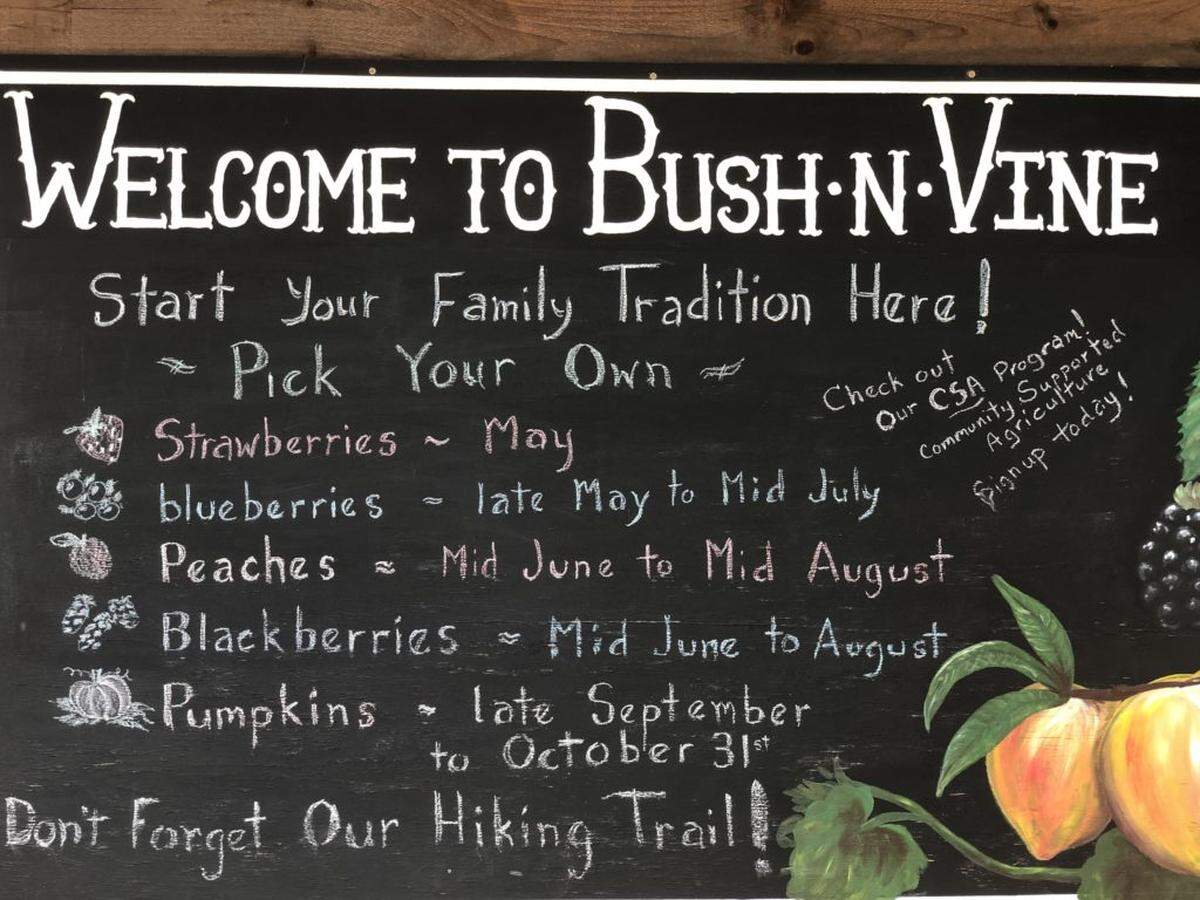 WELCOME TO BUSH·N·VINE
Start Your Family Tradition Here!
~ Pick Your Own ~
Strawberries ~ May
blueberries ~ late May to Mid July
Peaches ≈ Mid June to Mid August
Blackberries ≈ Mid June to August
Pumpkins ~ late September
to October 31st
Don't Forget Our Hiking Trail!
Check out
Our CSA Program!
Community Supported
Agriculture
Signup today!